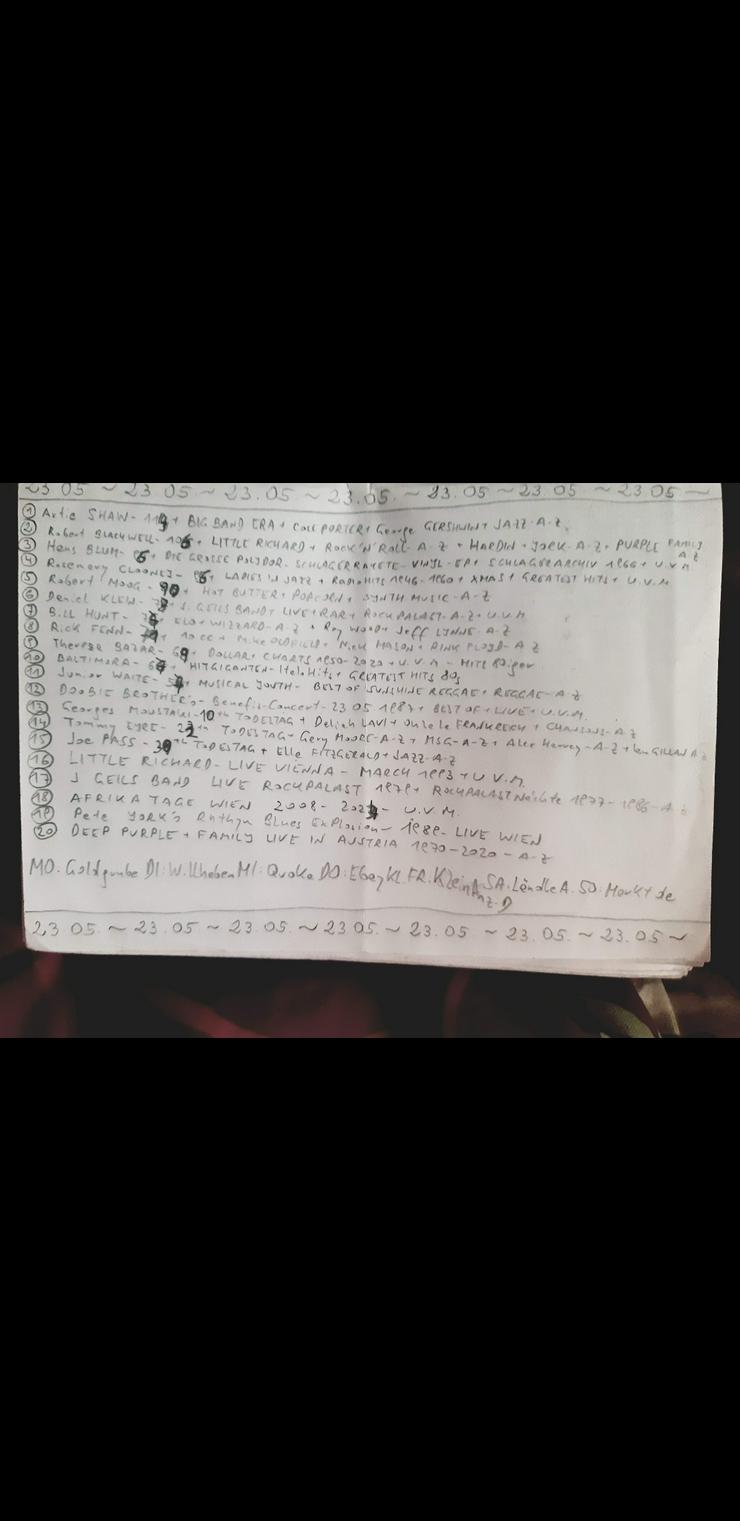 23 05 ~ 23 05 ~ 23.05 ~ 23.05. ~ 23.05 ~ 23.05 ~ 23.05 ~
① Artie SHAW - + BIG BAND ERA + COLE PORTER + George GERSHWIN + JAZZ - A-Z.
② Robert BLACKWELL - 106 + LITTLE RICHARD + ROCK'N'ROLL - A-Z + HARDIN + YORK - A-Z + PURPLE FAMILY A-Z
③ Hans BLUM - + DIE GROSSE POLYDOR - SCHLAGERRAKETE - VINYL - EP + SCHLAGERARCHIV 1966 + U.V.M
④ Rosemary CLOONEY - + LADIES IN JAZZ + RadioHits 1946-1960 + XMAS + GREATEST HITS + U.V.M
⑤ Robert MOOG - 90 + HOT BUTTER + POPCORN + SYNTH MUSIC - A-Z
⑥ Daniel KLEW - + J. GEILS BAND + LIVE + RAR + ROCKPALAST - A-Z + U.V.M
⑦ BILL HUNT - + ELO + WIZZARD - A-Z + Roy WOOD + Jeff LYNNE - A-Z
⑧ Rick FENN - + 10 CC + Mike OLDFIELD + Nick MASON + PINK FLOYD - A-Z
⑨ Therese BAZAR - 69 + DOLLAR + CHARTS 1950-2020 + U.V.M - HITS 80iger
⑩ BALTIMORA - + HITGIGANTEN - ItaloHits + GREATEST HITS 80s
⑪ Junior WAITE - + MUSICAL YOUTH - BEST OF SUNSHINE REGGAE + REGGAE - A-Z
⑫ DOOBIE BROTHER'S - Benefis-Concert - 23 05 1987 + BEST OF + LIVE + U.V.M.
⑬ Georges MOUSTAKI - 10th TODESTAG + Deliah LAVI + FRANKREICH + CHANSONS - A-Z
⑭ Tommy EYRE - 22th TODESTAG + Gery MOORE - A-Z + MSG - A-Z + Alex Harvey - A-Z + Ian GILLAN A-Z
⑮ Joe PASS - TODESTAG + Elle FITZGERALD + JAZZ - A-Z
⑯ LITTLE RICHARD - LIVE VIENNA - MARCH 1993 + U.V.M.
⑰ J GEILS BAND LIVE ROCKPALAST 1979 + ROCKPALAST Nächte 1977-1986 - A-Z
⑱ AFRIKA TAGE WIEN 2008 - - U.V.M.
⑲ Pete YORK'S Rhthym Blues Explosion - 1988 - LIVE WIEN
⑳ DEEP PURPLE + FAMILY LIVE IN AUSTRIA 1970-2020 - A-Z
MO: Goldgrube DI: W.Llhaben MI: Quoka DO: Ebay KL FR. KleinAnz. D SA. LändleA. SO: Markt de
23 05. ~ 23.05 ~ 23.05. ~ 23 05. ~ 23.05 ~ 23.05. ~ 23.05 ~